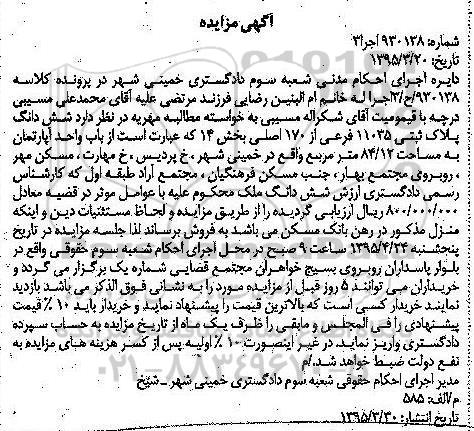 آگهی مزایده
شماره: ۹۳۰۱۳۸ اجرا۳
تاریخ: ۱۳۹۵/۳/۲۰
دایره اجرای احکام مدنی شعبه سوم دادگستری خمینی شهر در پرونده کلاسه
۹۳۰۱۳۸/ج/۳اجرا له خانم ام البنین رضایی فرزند مرتضی علیه آقای محمدعلی مسیبی
درچه با قیمومیت آقای شکراله مسیبی به خواسته مطالبه مهریه در نظر دارد شش دانگ
پلاک ثبتی ۱۱۰۳۵ فرعی از ۱۷۰ اصلی بخش ۱۴ که عبارت است از باب واحد آپارتمان
به مساحت ۸۴/۱۲ متر مربع واقع در خمینی شهر ، خ پردیس ، خ مهارت ، مسکن مهر
، روبروی مجتمع بهار، جنب مسکن فرهنگیان ، مجتمع آراد طبقه اول که کارشناس
رسمی دادگستری ارزش شش دانگ ملک محکوم علیه با عوامل موثر در قضیه معادل
۸۰۰/۰۰۰/۰۰۰ ریال ارزیابی گردیده را از طریق مزایده و لحاظ مستثنیات دین و اینکه
منزل مذکور در رهن بانک مسکن می باشد به فروش برساند لذا جلسه مزایده در تاریخ
پنجشنبه ۱۳۹۵/۴/۲۴ ساعت ۹ صبح در محل اجرای احکام شعبه سوم حقوقی واقع در
بلوار پاسداران روبروی بسیج خواهران مجتمع قضایی شماره یک برگزار می گردد و
خریداران می توانند ۵ روز قبل از مزایده مورد را به نشانی فوق الذکر می باشد بازدید
نمایند خریدار کسی است که بالاترین قیمت را پیشنهاد نمایند و خریدار باید ۱۰ ٪ قیمت
پیشنهادی را فی المجلس و مابقی را ظرف یک ماه از تاریخ مزایده به حساب سپرده
دادگستری واریز نماید. در غیر اینصورت ۱۰ ٪ اولیه پس از کسر هزینه های مزایده به
نفع دولت ضبط خواهد شد./م
مدیر اجرای احکام حقوقی شعبه سوم دادگستری خمینی شهر ـ شیخ
م/الف: ۵۸۵
تاریخ انتشار: ۱۳۹۵/۳/۳۰